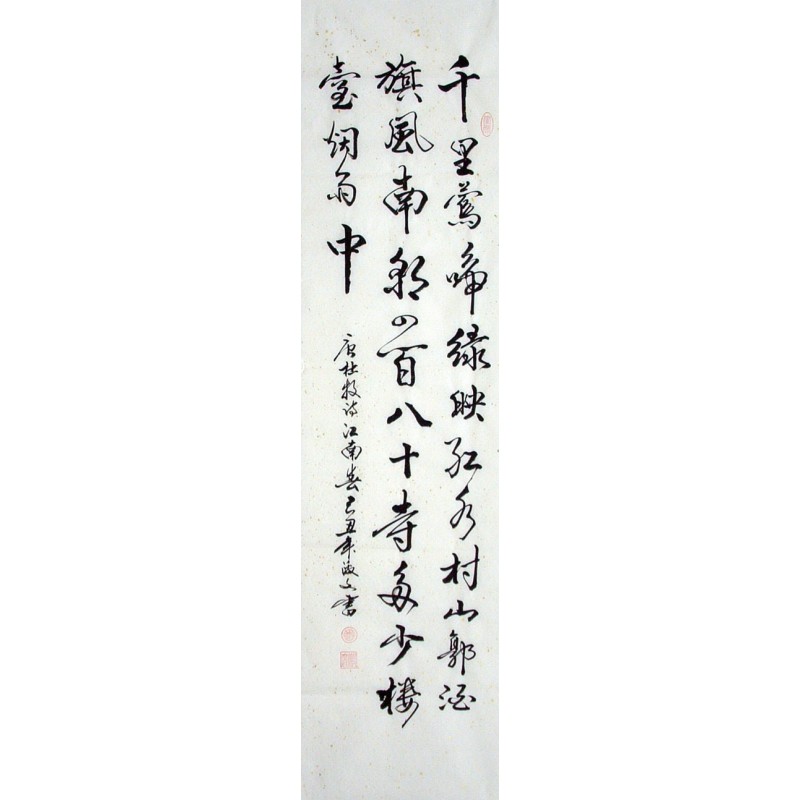 千里鶯啼绿映红水村山郭酒
旗風南朝四百八十寺多少楼
臺烟雨中
唐杜牧诗江南春己丑年淑文書